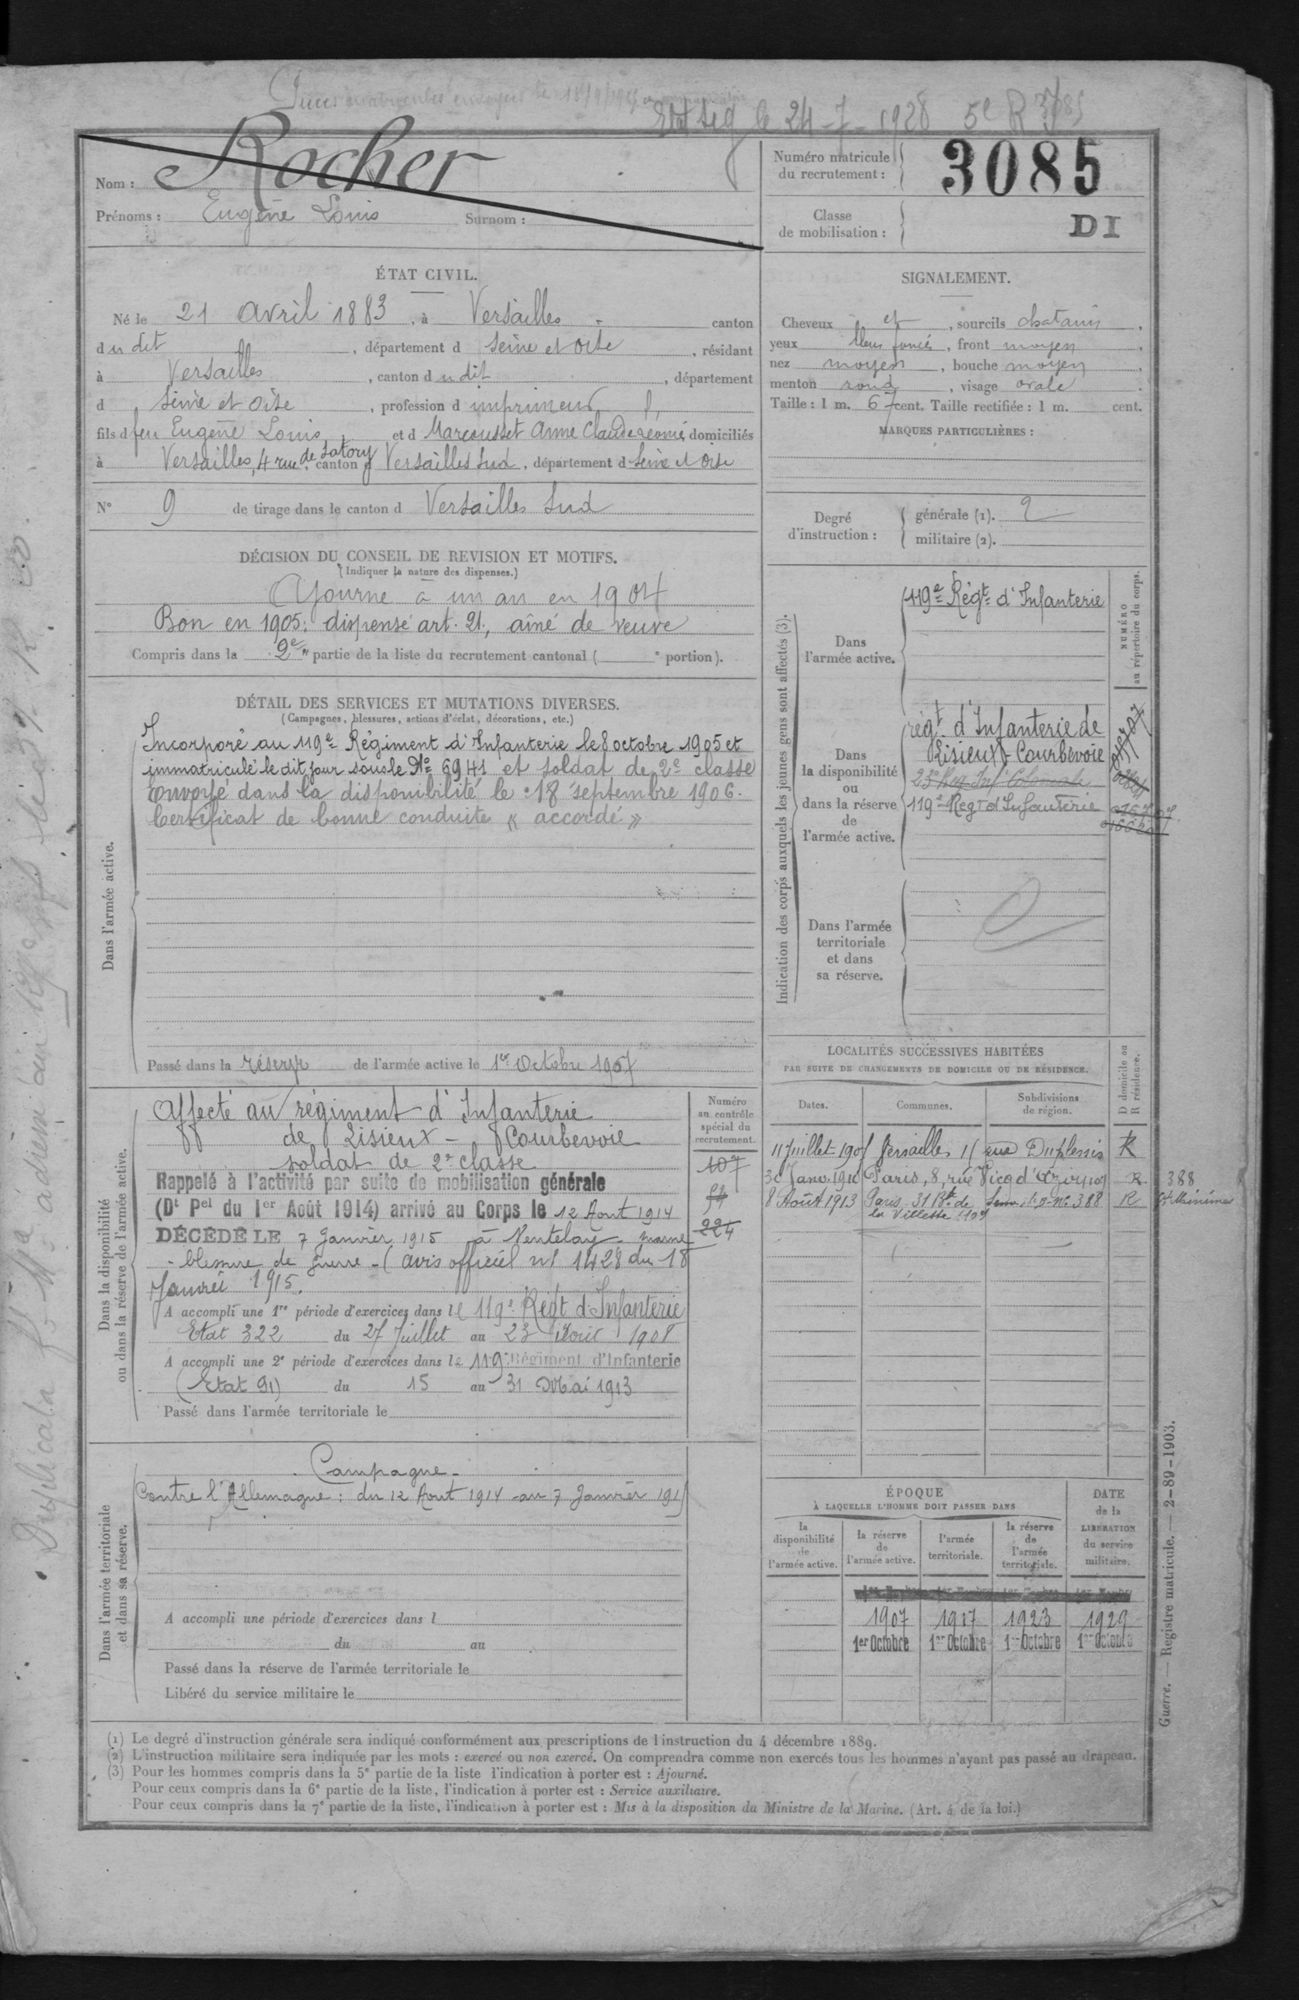 le 24-7-1928 5e R
3085
Nom : Rocher
Prénoms : Eugène Louis Surnom :
Numéro matricule
du recrutement : 3085
Classe
de mobilisation : DI
ÉTAT CIVIL.
Né le 21 avril 1883, à Versailles canton
dudit, département d Seine et Oise, résidant
à Versailles, canton dudit, département
d Seine et Oise, profession d imprimeur
fils d feu Eugène Louis et d Marcousset Anne Claude Léonie domiciliés
à Versailles, 4 rue de Satory canton Versailles Sud, département d Seine et Oise
N° 9 de tirage dans le canton d Versailles Sud
DÉCISION DU CONSEIL DE REVISION ET MOTIFS.
(Indiquer la nature des dispenses.)
Ajourné à un an en 1904
Bon en 1905; dispensé art. 21, aîné de veuve
Compris dans la 2e partie de la liste du recrutement cantonal ( e portion).
SIGNALEMENT.
Cheveux et, sourcils chatains,
yeux bleus foncés, front moyen,
nez moyen, bouche moyen,
menton rond, visage ovale.
Taille : 1 m. 67 cent. Taille rectifiée : 1 m. cent.
MARQUES PARTICULIÈRES :
Degré
d'instruction :
générale (1). 2
militaire (2).
DÉTAIL DES SERVICES ET MUTATIONS DIVERSES.
(Campagnes, blessures, actions d'éclat, décorations, etc.)
Dans l'armée active.
Incorporé au 119e Régiment d'Infanterie le 8 octobre 1905 et
immatriculé le dit jour sous le No 6941 et soldat de 2e classe
Envoyé dans la disponibilité le 18 septembre 1906.
Certificat de bonne conduite « accordé »
Passé dans la réserve de l'armée active le 1er Octobre 1907
Indication des corps auxquels les jeunes gens sont affectés (3).
NUMÉRO
au répertoire du corps.
Dans
l'armée active.
119e Régt d'Infanterie
Dans
la disponibilité
ou
dans la réserve
de
l'armée active.
régt d'Infanterie de
Lisieux Courbevoie
23e Rég Inf Coloniale
119e Régt d'Infanterie
Dans l'armée
territoriale
et dans
sa réserve.
Dans la disponibilité
ou dans la réserve de l'armée active.
Numéro
au contrôle
spécial du
recrutement.
107
224
Affecté au régiment d'Infanterie
de Lisieux - Courbevoie
soldat de 2e classe
Rappelé à l'activité par suite de mobilisation générale
(Dt Pel du 1er Août 1914) arrivé au Corps le 12 Aout 1914
DÉCÉDÉ LE 7 Janvier 1915 à Ventelay - marne
- blessure de guerre - (avis officiel n° 1428 du 18
Janvier 1915.
A accompli une 1re période d'exercices dans le 119e Régt d'Infanterie
Etat 322 du 27 Juillet au 23 Août 1908
A accompli une 2e période d'exercices dans le 119e Régiment d'Infanterie
(Etat 91) du 15 au 31 Mai 1913
Passé dans l'armée territoriale le
LOCALITÉS SUCCESSIVES HABITÉES
PAR SUITE DE CHANGEMENTS DE DOMICILE OU DE RÉSIDENCE.
D domicile ou
R résidence.
Dates. Communes. Subdivisions
de région.
11 Juillet 190 Versailles 11 rue Duplessis R
30 Janv. 1910 Paris, 8, rue Vicq d'Azir R
8 Août 1913 Paris, 31 Bd de la Villette Seine 388 R
388
Dans l'armée territoriale
et dans sa réserve.
Campagne -
Contre l'Allemagne : du 12 Aout 1914 au 7 Janvier 1915
A accompli une période d'exercices dans l
du au
Passé dans la réserve de l'armée territoriale le
Libéré du service militaire le
ÉPOQUE
À LAQUELLE L'HOMME DOIT PASSER DANS
DATE
de la
LIBÉRATION
du service
militaire.
la
disponibilité
de
l'armée active.
la réserve
de
l'armée active.
l'armée
territoriale.
la réserve
de
l'armée
territoriale.
1907 1917 1923 1929
1er Octobre 1er Octobre 1er Octobre 1er Octobre
(1) Le degré d'instruction générale sera indiqué conformément aux prescriptions de l'instruction du 4 décembre 1889.
(2) L'instruction militaire sera indiquée par les mots : exercé ou non exercé. On comprendra comme non exercés tous les hommes n'ayant pas passé au drapeau.
(3) Pour les hommes compris dans la 5e partie de la liste l'indication à porter est : Ajourné.
Pour ceux compris dans la 6e partie de la liste, l'indication à porter est : Service auxiliaire.
Pour ceux compris dans la 7e partie de la liste, l'indication à porter est : Mis à la disposition du Ministre de la Marine. (Art. 4 de la loi.)
Guerre. — Registre matricule. — 2-89-1903.